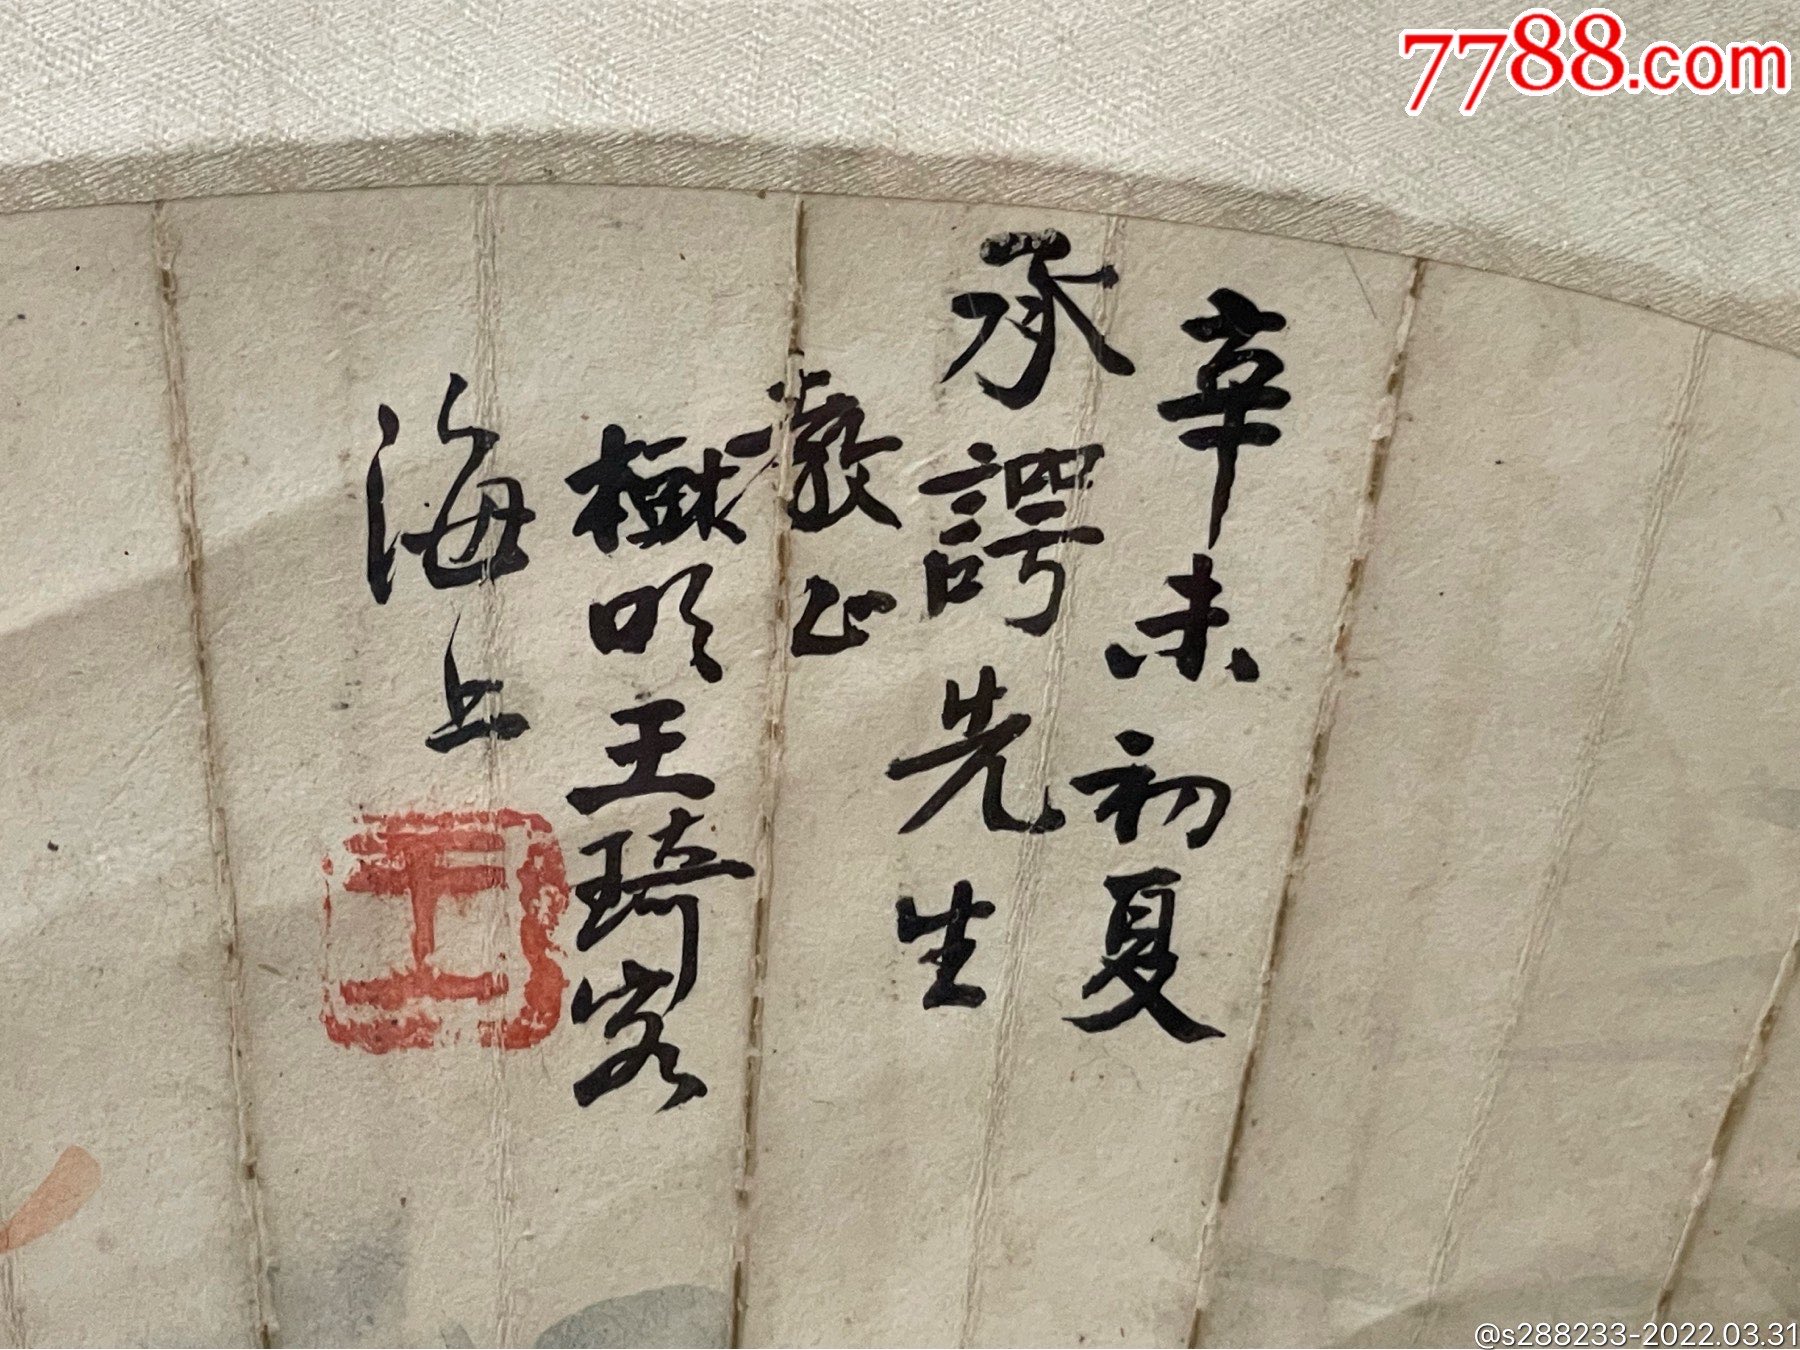 辛未初夏
承諤先生
教正
王琦客
海上
王
7788.com
@s288233-2022.03.31